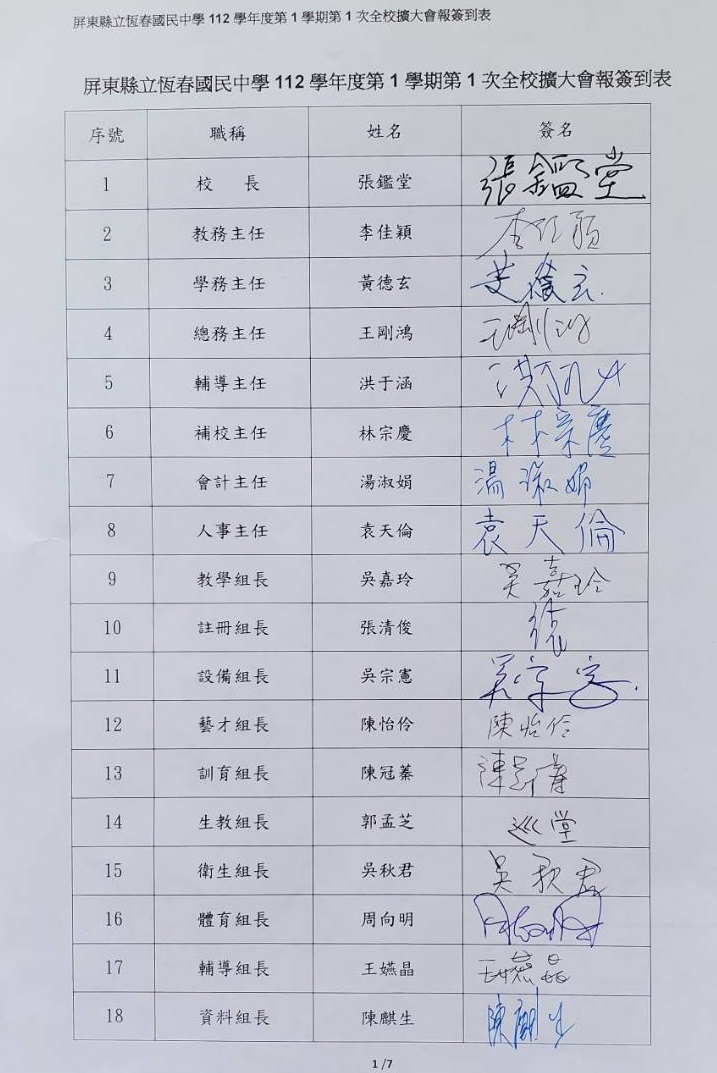 屏東縣立恆春國民中學 112 學年度第 1 學期第 1 次全校擴大會報簽到表
屏東縣立恆春國民中學 112 學年度第 1 學期第 1 次全校擴大會報簽到表
序號 職稱 姓名 簽名
1 校 長 張鑑堂 張鑑堂
2 教務主任 李佳穎 李佳穎
3 學務主任 黃德玄 黃德玄
4 總務主任 王剛鴻 王剛鴻
5 輔導主任 洪于涵
6 補校主任 林宗慶 林宗慶
7 會計主任 湯淑娟 湯淑娟
8 人事主任 袁天倫 袁天倫
9 教學組長 吳嘉玲 吳嘉玲
10 註冊組長 張清俊
11 設備組長 吳宗憲 吳宗憲
12 藝才組長 陳怡伶 陳怡伶
13 訓育組長 陳冠蓁 陳冠蓁
14 生教組長 郭孟芝 巡堂
15 衛生組長 吳秋君 吳秋君
16 體育組長 周向明
17 輔導組長 王嬿晶 王嬿晶
18 資料組長 陳麒生 陳麒生
1 /7